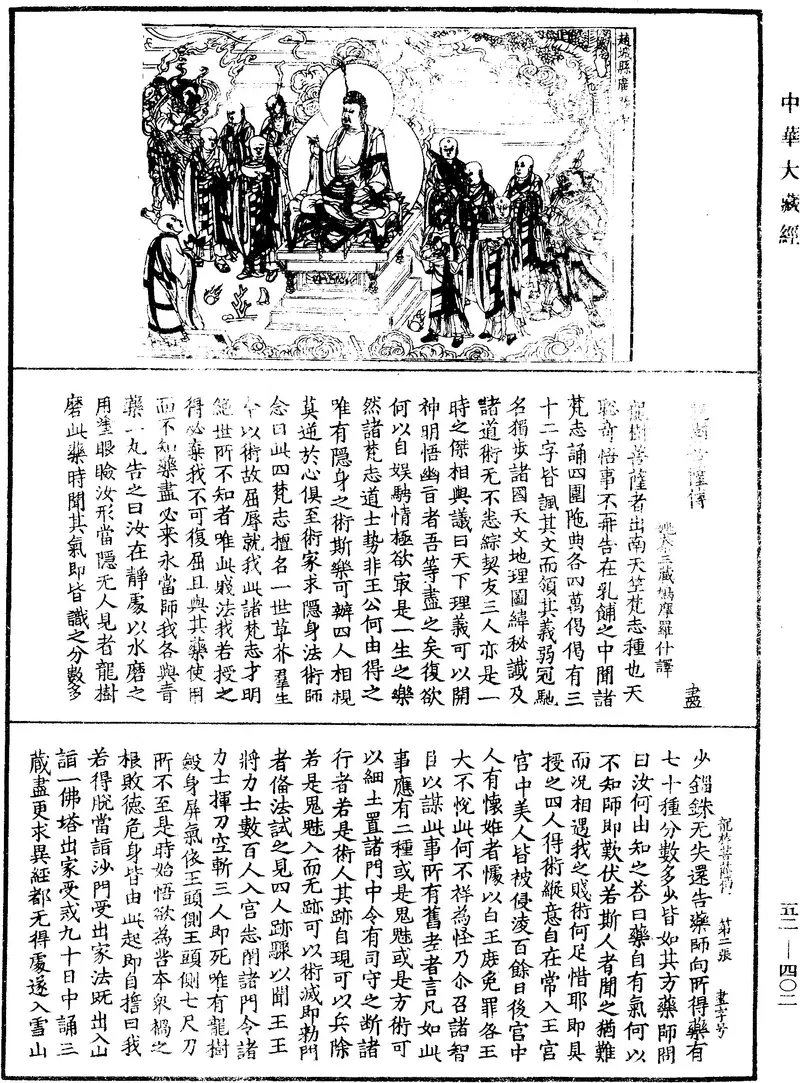 中華大藏經
趙城縣廣
龍樹菩薩傳
姚秦三藏鳩摩羅什譯
盡
龍樹菩薩者出南天竺梵志種也天
聰奇悟事不再告在乳餔之中聞諸
梵志誦四圍陁典各四萬偈偈有三
十二字皆諷其文而領其義弱冠馳
名獨步諸國天文地理圖緯秘讖及
諸道術无不悉綜契友三人亦是一
時之傑相與議曰天下理義可以開
神明悟幽旨者吾等盡之矣復欲
何以自娛騁情極欲寂是一生之樂
然諸梵志道士勢非王公何由得之
唯有隱身之術斯樂可辦四人相視
莫逆於心俱至術家求隱身法術師
念曰此四梵志擅名一世草芥羣生
今以術故屈辱就我此諸梵志才明
絕世所不知者唯此賤法我若授之
得必棄我不可復屈且與其藥使用
而不知藥盡必来永當師我各與青
藥一丸告之曰汝在靜處以水磨之
用塗眼瞼汝形當隱无人見者龍樹
磨此藥時聞其氣即皆識之分數多
龍樹菩薩傳 第二張 盡字号
少錙銖无失還告藥師向所得藥有
七十種分數多少皆如其方藥師問
曰汝何由知之荅曰藥自有氣何以
不知師即歎伏若斯人者聞之猶難
而況相遇我之賤術何足惜耶即具
授之四人得術縱意自在常入王宮
宮中美人皆被侵淩百餘日後宮中
人有懷姙者懅以白王庶免罪咎王
大不悅此何不祥為怪乃尒召諸智
臣以謀此事所有舊老者言凡如此
事應有二種或是鬼魅或是方術可
以細土置諸門中令有司守之斷諸
行者若是術人其跡自現可以兵除
若是鬼魅入而无跡可以術滅即勑門
者俻法試之見四人跡驟以聞王王
將力士數百人入宮悉閇諸門令諸
力士揮刀空斬三人即死唯有龍樹
斂身屏氣依王頭側王頭側七尺刀
所不至是時始悟欲為苦本衆禍之
根敗德危身皆由此起即自擔曰我
若得脫當詣沙門受出家法既出入山
詣一佛塔出家受戒九十日中誦三
藏盡更求異經都无得處遂入雪山
五二—四〇二